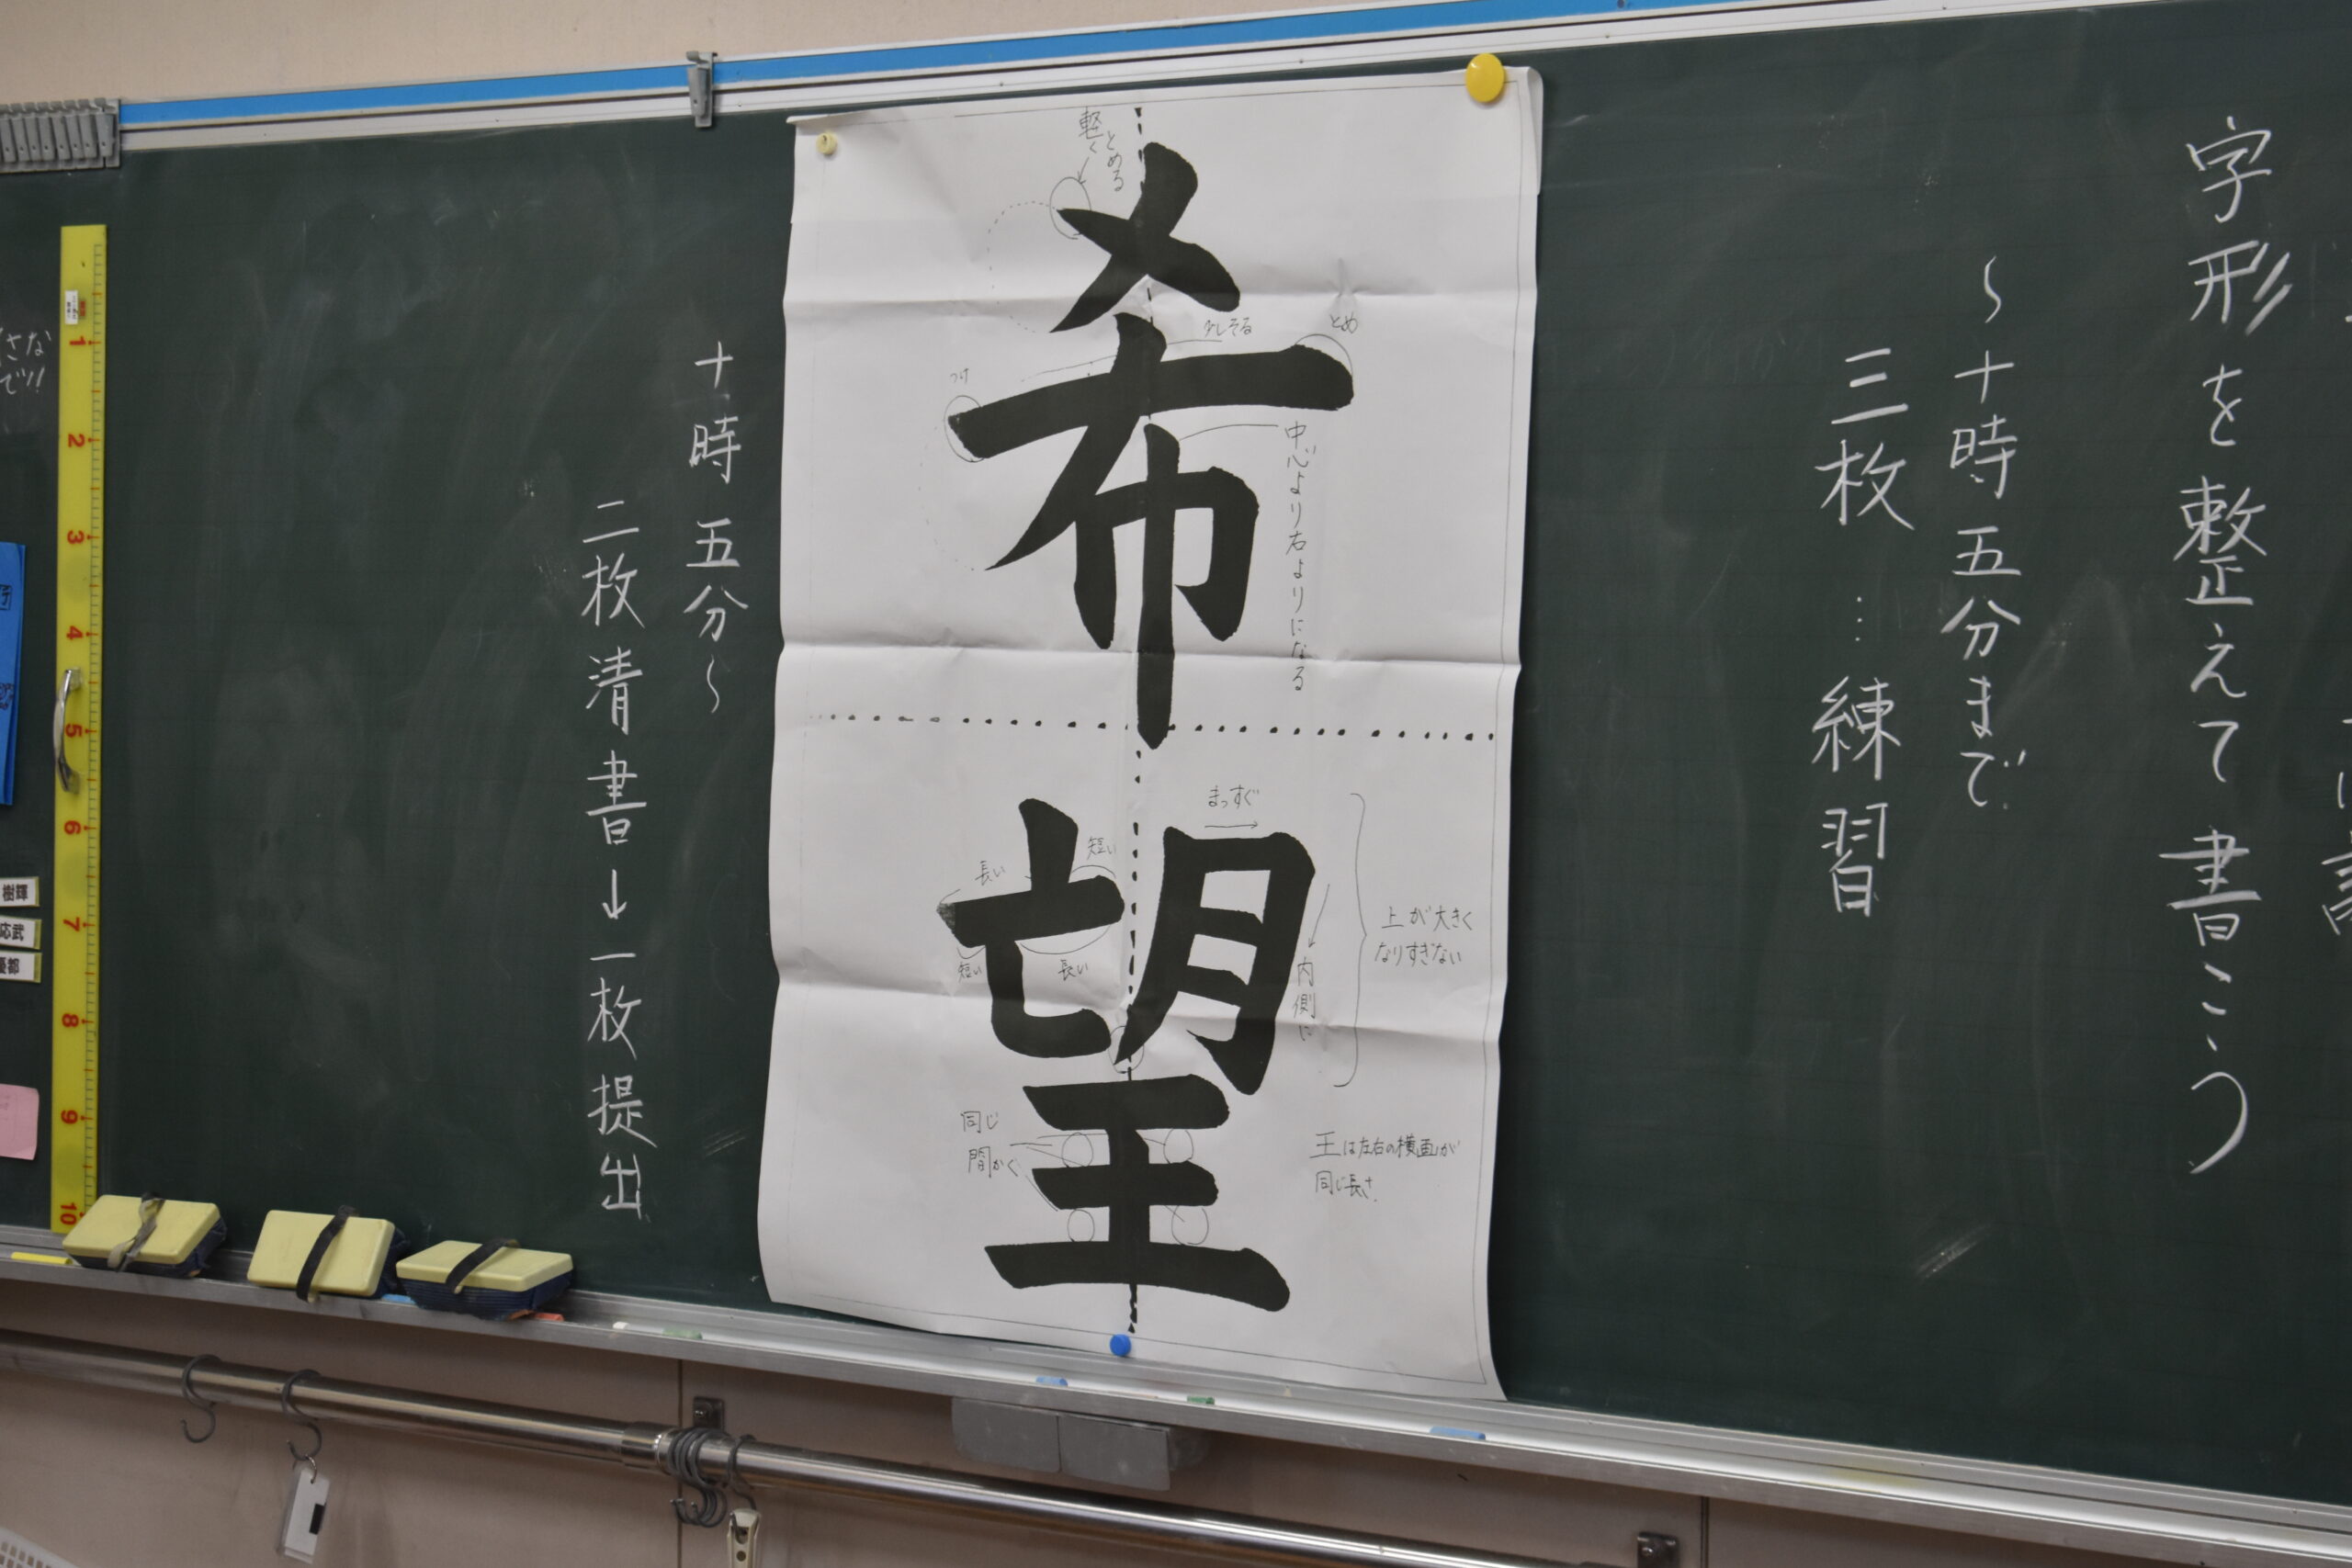 字形を整えて書こう
～十時五分まで
三枚…練習
希望
軽くとめる
少しそる
とめ
つけ
中心より右よりになる
まっすぐ
短い
長い
短い
長い
内側に
上が大きく
なりすぎない
同じ
間かく
王は左右の横画が
同じ長さ
十時五分～
二枚清書→一枚提出
さな
で!!
1
2
3
4
5
6
7
8
9
10
樹輝
応武
優都